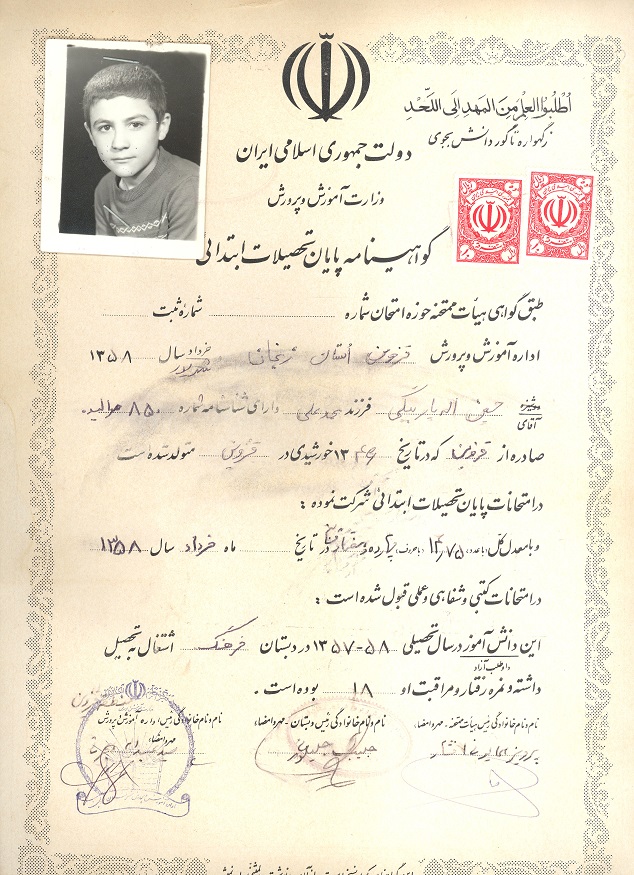 اُطْلُبُوا العِلْمَ مِنَ المَهدِ اِلَی اللَّحَّد
زگهواره تا گور دانش بجوی
دولت جمهوری اسلامی ایران
وزارت آموزش و پرورش
گواهینامه پایان تحصیلات ابتدائی
طبق گواهی هیأت ممتحنه حوزه امتحان شماره شمارهٔ ثبت
اداره آموزش و پرورش قزوین استان زنجان خرداد سال ۱۳۵۸
دوشیزه آقای حسین اله یار بیگی فرزند محمدعلی دارای شناسنامه شماره ۸۵۰
صادره از قزوین که در تاریخ ۱۳۴۶ خورشیدی در قزوین متولد شده است
در امتحانات پایان تحصیلات ابتدائی شرکت نموده :
و با معدل کل (با عدد) ۱۴/۷۵ (با حروف) در تاریخ ماه خرداد سال ۱۳۵۸
در امتحانات کتبی و شفاهی و عملی قبول شده است :
این دانش آموز در سال تحصیلی ۵۸-۱۳۵۷ در دبستان فرهنگ اشتغال به تحصیل
داوطلب آزاد
داشته و نمره رفتار و مراقبت او ۱۸ بوده است .
نام و نام خانوادگی رئیس هیأت ممتحنه - مهر و امضاء
نام و نام خانوادگی رئیس دبستان - مهر و امضاء
نام و نام خانوادگی رئیس اداره آموزش و پرورش
مهر و امضاء
پرویز
حبیب